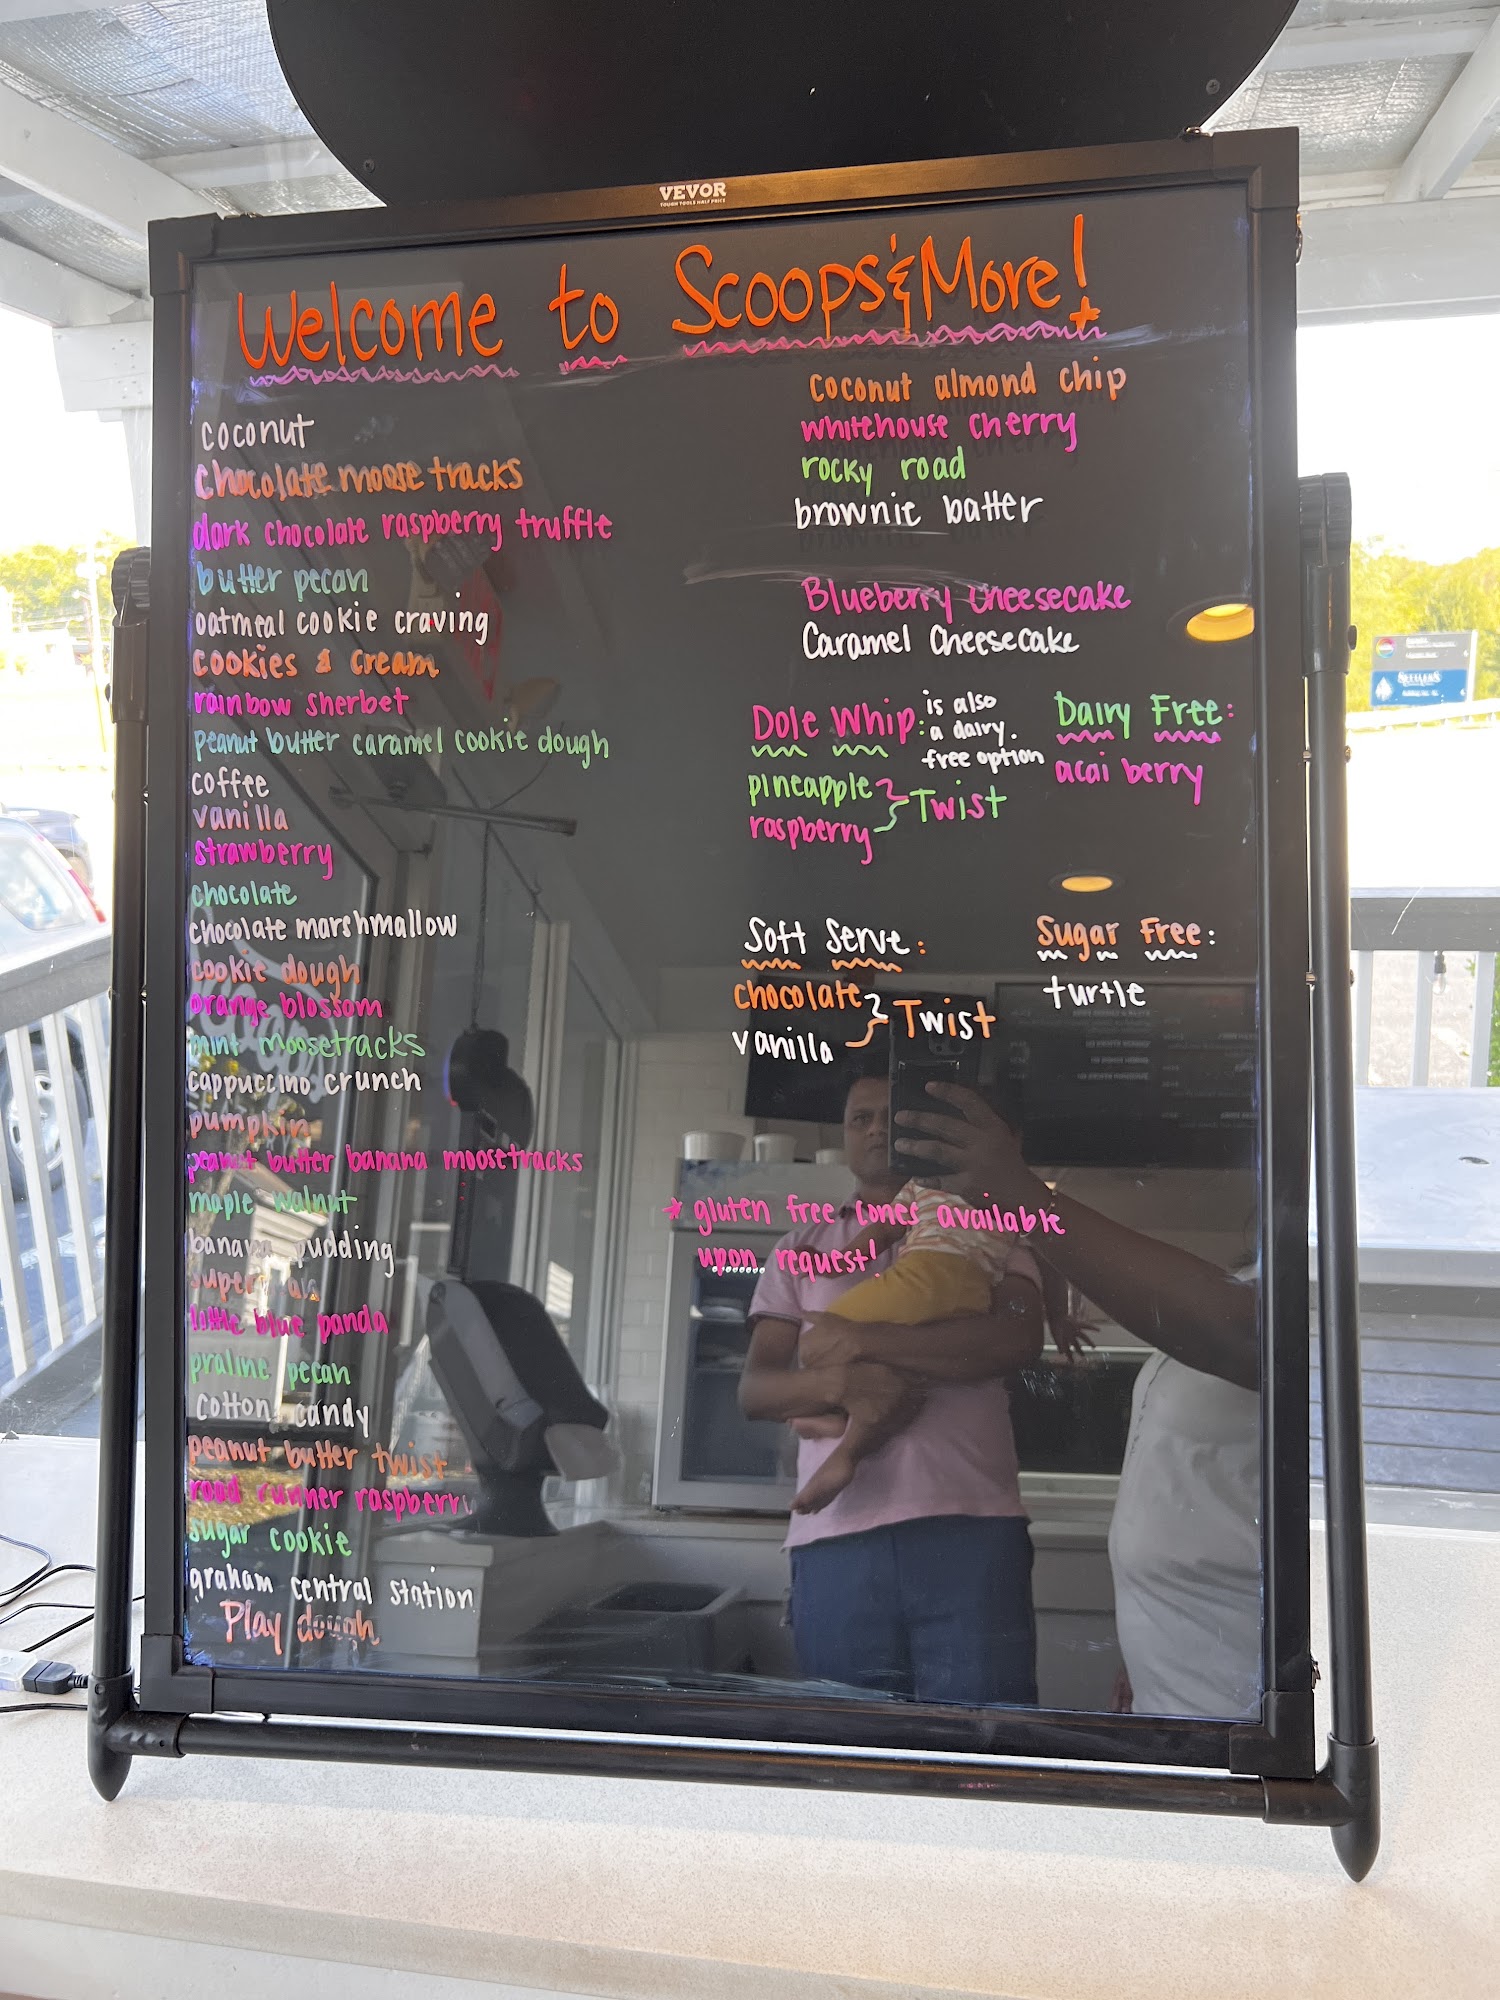 VEVOR
TOUGH TOOLS HALF PRICE
Welcome to Scoops & More!
coconut
chocolate moose tracks
dark chocolate raspberry truffle
butter pecan
oatmeal cookie craving
cookies & cream
rainbow sherbet
peanut butter caramel cookie dough
coffee
vanilla
strawberry
chocolate
chocolate marshmallow
cookie dough
orange blossom
mint moosetracks
cappuccino crunch
pumpkin
peanut butter banana moosetracks
maple walnut
banana pudding
super
little blue panda
praline pecan
cotton candy
peanut butter twist
road runner raspberry
sugar cookie
graham central station
Play dough
coconut almond chip
whitehouse cherry
rocky road
brownie batter
Blueberry Cheesecake
Caramel Cheesecake
Dole Whip:
is also
a dairy.
free option
pineapple
raspberry
Twist
Dairy Free:
acai berry
Soft Serve:
chocolate
vanilla
Twist
Sugar Free:
turtle
* gluten free cones available
upon request!